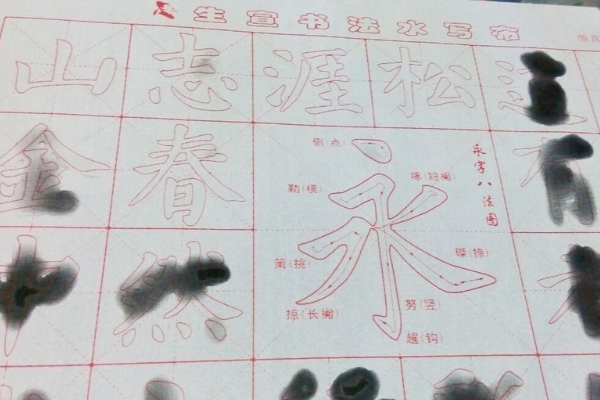 生宣书法水写布
山志涯松
金春
然
永
永字八法图
侧(点)
啄(短撇)
勒(横)
策(挑)
磔(捺)
掠(长撇)
努(竖)
趯(钩)